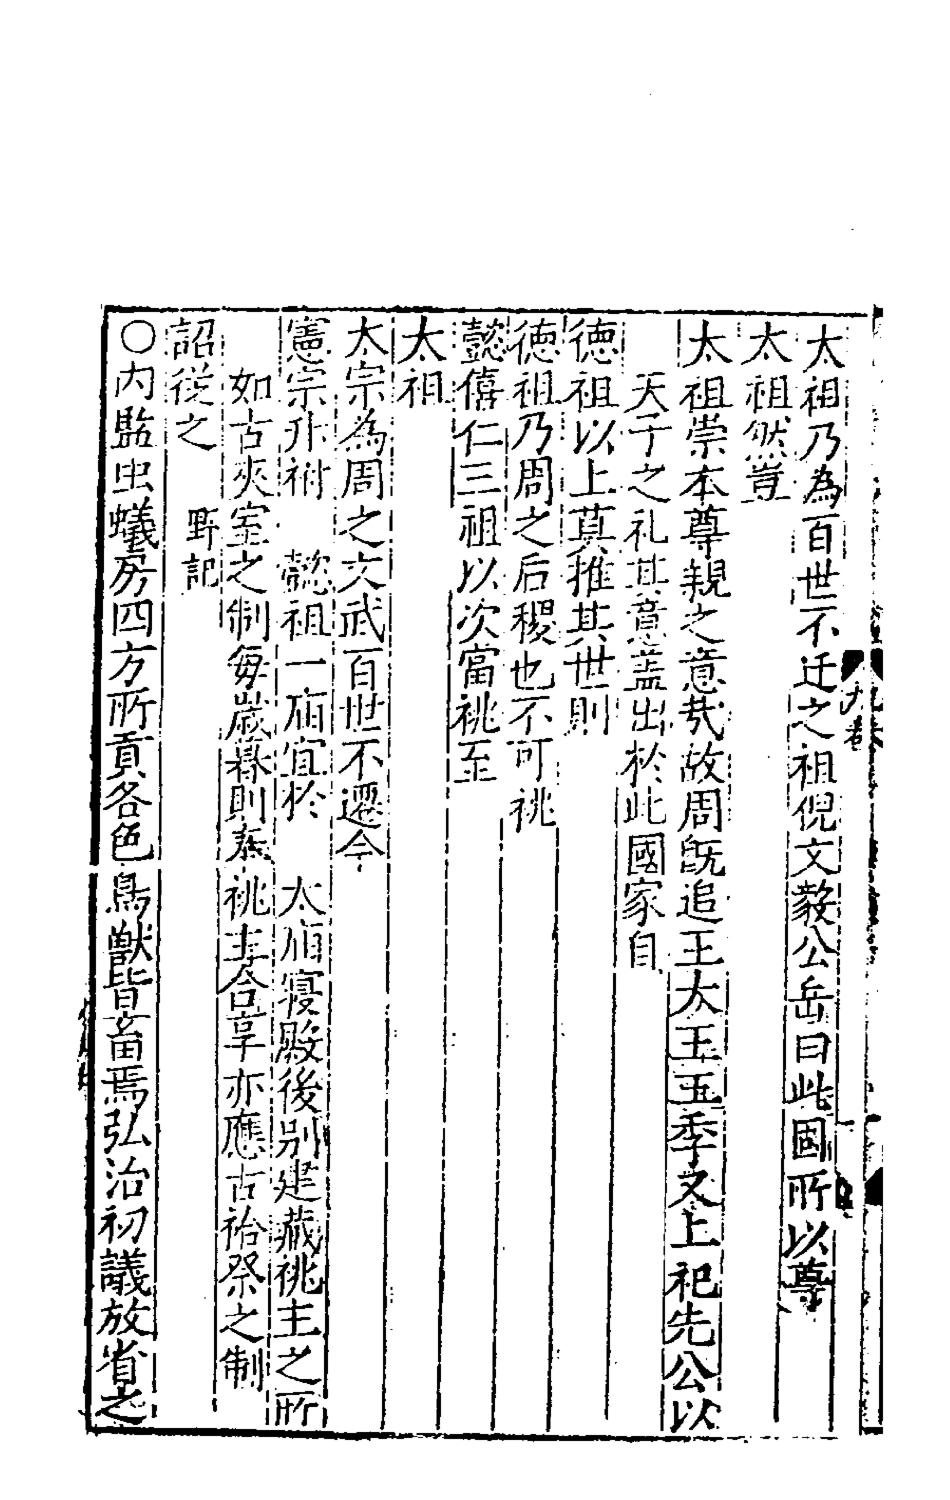 太祖乃為百世不迁之祖倪文毅公岳曰此國所以尊
太祖然豈
太祖崇本尊親之意㢤故周旣追王太王王季又上祀先公以
天子之礼其意盖出於此國家自
德祖以上莫推其世則
德祖乃周之后稷也不可祧
懿僖仁三祖以次當祧至
太祖
太宗為周之文武百世不遷今
憲宗升祔 懿祖一庙宜於 太庙寝殿後别建藏祧主之所
如古夾室之制毎嵗暮則奉祧主合享亦應古祫祭之制
詔從之 野記
○内監虫蟻房四方所貢各色鳥獸皆畜焉弘治初議放省之
九卷